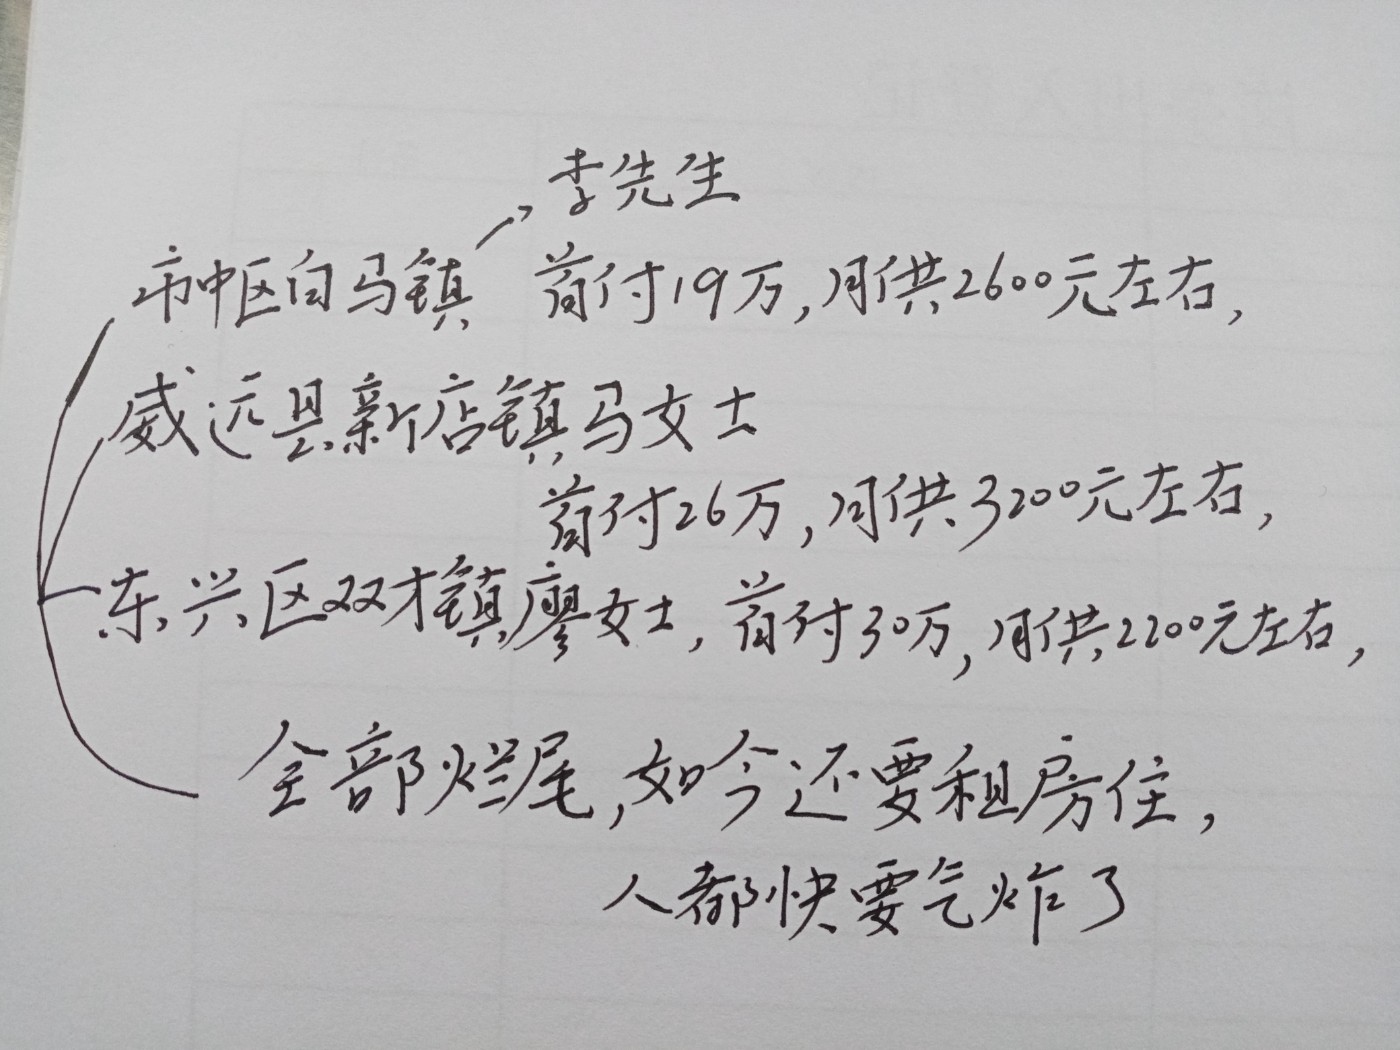 李先生
市中区白马镇 首付19万,月供2600元左右,
威远县新店镇马女士
首付26万,月供3200元左右,
东兴区双才镇廖女士,首付30万,月供2200元左右,
全部烂尾,如今还要租房住,
人都快要气炸了